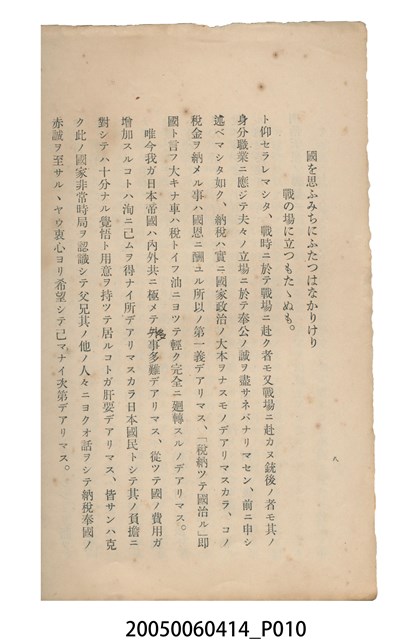 國を思ふみちにふたつはなかりけり
戰の場に立つもたゝぬも。
ト仰セラレマシタ、戰時ニ於テ戰場ニ赴ク者モ又戰場ニ赴カヌ銃後ノ者モ其ノ
身分職業ニ應ジテ夫々ノ立場ニ於テ奉公ノ誠ヲ盡サネバナリマセン、前ニ申シ
述ベマシタ如ク、納稅ハ實ニ國家政治ノ大本ヲナスモノデアリマスカラ、コノ
稅金ヲ納メル事ハ國恩ニ酬ユル所以ノ第一義デアリマス、「稅納ツテ國治ル」即
國ト言フ大キナ車ハ稅トイフ油ニヨツテ輕ク完全ニ廻轉スルノデアリマス。
唯今我ガ日本帝國ハ內外共ニ極メテ多事多難デアリマス、從ツテ國ノ費用ガ
增加スルコトハ洵ニ已ムヲ得ナイ所デアリマスカラ日本國民トシテ其ノ負擔ニ
對シテハ十分ナル覺悟ト用意ヲ持ツテ居ルコトガ肝要デアリマス、皆サンハ克
ク此ノ國家非常時局ヲ認識シテ父兄其ノ他ノ人々ニヨクオ話ヲシテ納稅奉國ノ
赤誠ヲ至サルヽヤウ衷心ヨリ希望シテ已マナイ次第デアリマス。
八
20050060414_P010